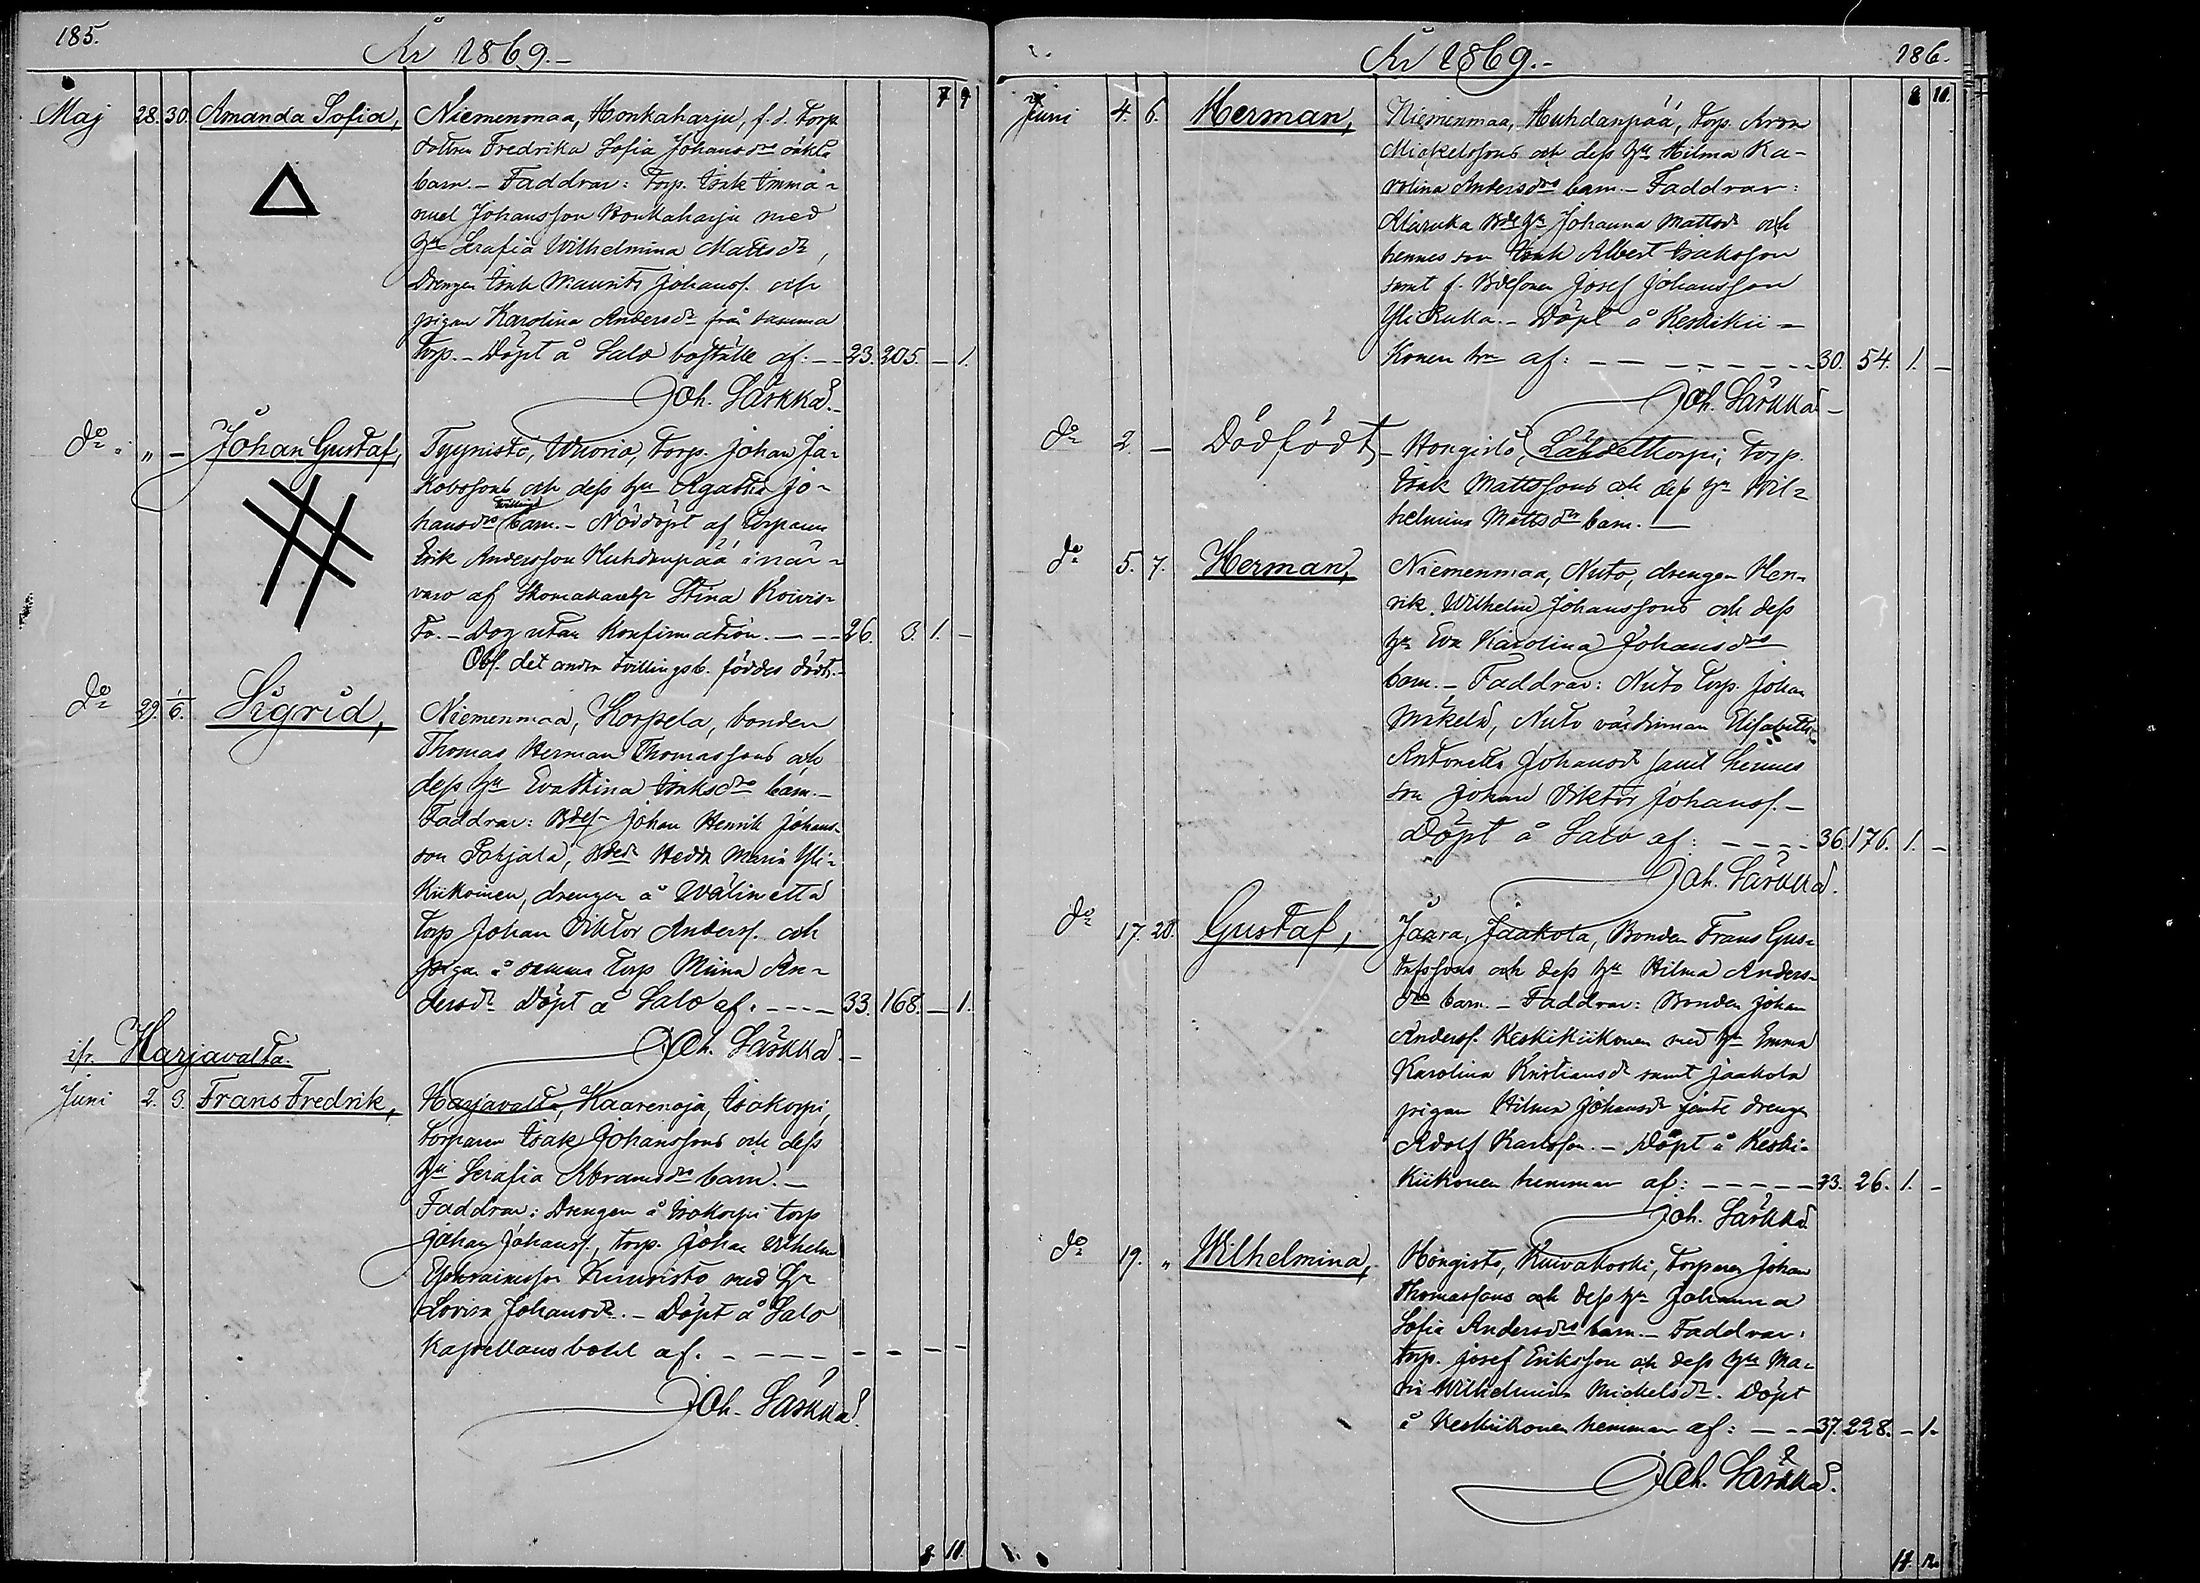 185.
År 1869.-
7 9
Maj 28. 30. Amanda Sofia, Niemenmaa, Honkaharju, f.d. Torp.
dottren Fredrika Sofia Johansdrs oäkta
barn. - Faddrar: Torp. Isak Imma-
nuel Johansson Honkaharju med
hu Serafia Wilhelmina Mattsdr,
Drengen Isak Maurits Johanss. och
pigan Karolina Andersdr från samma
Torp. - Döpt å Salo boställe af: - - 23. 205. - 1.
Joh. Särkkä.-
do " - Johan Gustaf, Tyynistö, Wuorio, Torp. Johan Ja-
kobssons och dess hu Agatha Jo-
hansdrs tvillings barn. - Nöddöpt af torparen
Erik Andersson Huhdanpää i när-
varo af Skomakareh. Stina Koivis-
to. - Dog utan Konfirmation. - - - 26. 3. 1. -
Obs. det andra tvillingsb. föddes dödt.-
do 29. 1/6. Sigrid, Niemenmaa, Korpela, bonden
Thomas Herman Thomassons och
dess hu Eva Stina Isaksdrs barn. -
Faddrar: Bdes. Johan Henrik Johans-
son Pohjala, Bdedr Hedda Maria Yli-
Kiikoinen, drengen å Wälimettä
Torp Johan Viktor Anderss. och
pigan å samma Torp Miina An-
dersdr Döpt å Salo af. - - - - 33. 168. - 1.
Joh. Särkkä.-
ifr. Harjavalta.
Juni 2. 3. Frans Fredrik, Harjavalta, Kaarenoja, Isokorpi,
torparen Isak Johanssons och dess
hu Serafia Abramsdrs barn. -
Faddrar: Drengen å Isokorpi torp
Johan Johanss., torp. Johan Wilhelm
Ephraimsson Kuusisto med hu
Lovisa Johansdr. - Döpt å Salo
Kapellans bohl af. - - - - - - - -
Joh. Särkkä.
8. 10.
År 1869.-
186.
8 10.
Juni 4. 6. Herman, Niemenmaa, Huhdanpää, Torp. Aron
Mickelssons och dess hu Hilma Ka-
rolina Andersdrs barn. - Faddrar:
Bde hu Johanna Mattsdr och
hennes son Isak Albert Isaksson
samt f. Bdesonen Josef Johansson
Yli Rukka. - Döpt å Keskikii-
konen hn af: - - - - - - - 30. 54. 1. -
Joh. Särkkä -
do 2. - Dödfödt, - Hongisto, Lähdekorpi, Torp.
Isak Mattssons och dess hu Wil-
helmina Mattsdrs barn. -
do 5. 7. Herman, Niemenmaa, Nuto, drengen Hen-
rik Wilhelm Johanssons och dess
hu Eva Karolina Johansdrs
barn. - Faddrar: Nuto Torp. Johan
Mäkelä, Nuto värdinnan Elisabeth
Antonetta Johansdr samt hennes
son Johan Viktor Johanss. -
Döpt å Salo af: - - - - 36. 176. 1. -
Joh. Särkkä.
do 17. 20. Gustaf, Jaara, Jaakola, Bonden Frans Gus-
tafssons och dess hu Hilma Anders-
drs barn. - Faddrar: Bonden Johan
Anderss. Keskikiikonen med hu Emma
Karolina Kristiansdr samt Jaakola
pigan Hilma Johansdr jemte drengen
Adolf Karlsson. - Döpt å Keski-
kiikonen hemman af: - - - - - 33. 26. 1. -
Joh. Särkkä
do 19. " Wilhelmina, Hongisto, Kuivakoski, Torparen Johan
Thomassons och dess hu Johanna
Sofia Andersdrs barn. - Faddrar:
Torp. Josef Eriksson och dess hu Ma-
ria Wilhelmina Mickelsdr. Döpt
å Keskikiikonen hemman af: - - - 37. 228. - 1.
Joh. Särkkä.